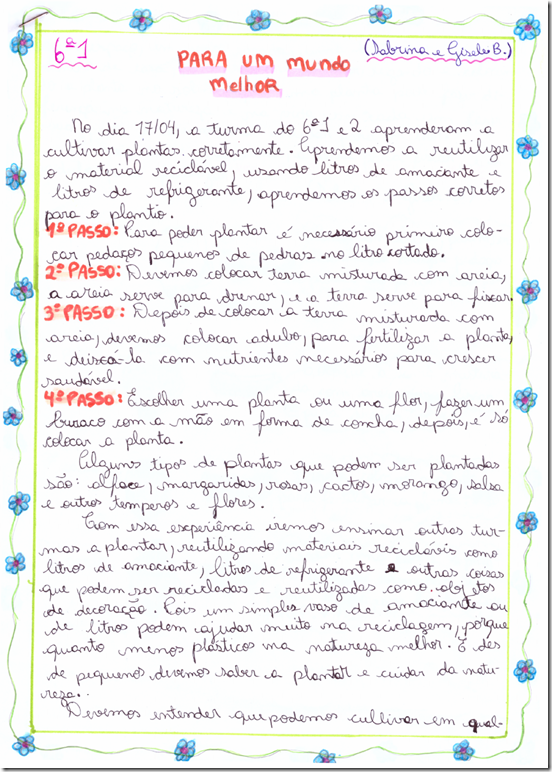 6ª1
(Sabrina e Gisele B.)
PARA UM MUNDO
MELHOR
No dia 17/04, a turma do 6ª1 e 2 aprenderam a
cultivar plantas corretamente. Aprendemos a reutilizar
o material reciclável, usando litros de amaciante e
litros de refrigerante, aprendemos os passos corretos
para o plantio.
1º PASSO: Para poder plantar é necessário primeiro colo-
car pedaços pequenos de pedras no litro cortado.
2º PASSO: Devemos colocar terra misturada com areia,
a areia serve para drenar, e a terra serve para fixar.
3º PASSO: Depois de colocar a terra misturada com
areia, devemos colocar adubo, para fertilizar a planta,
e deixá-la com nutrientes necessários para crescer
saudável.
4º PASSO: Escolher uma planta ou uma flor, fazer um
buraco com a mão em forma de concha, depois, é só
colocar a planta.
Alguns tipos de plantas que podem ser plantadas
são: alface, margaridas, rosas, cactos, morango, salsa
e outros temperos e flores.
Com essa experiência iremos ensinar outras tur-
mas a plantar, reutilizando materiais recicláveis como
litros de amaciante, litros de refrigerante e outras coisas
que podem ser recicladas e reutilizadas como objetos
de decoração. Pois um simples vaso de amaciante ou
de litros podem ajudar muito na reciclagem, porque
quanto menos plásticos na natureza melhor. E des
de pequenos devemos saber a plantar e cuidar da natu-
reza..
Devemos entender que podemos cultivar em qual-